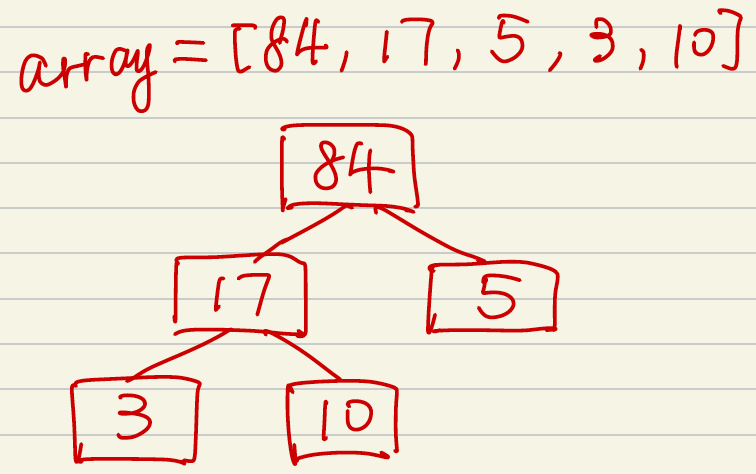 array = [84, 17, 5, 3, 10]
84
17 5
3 10